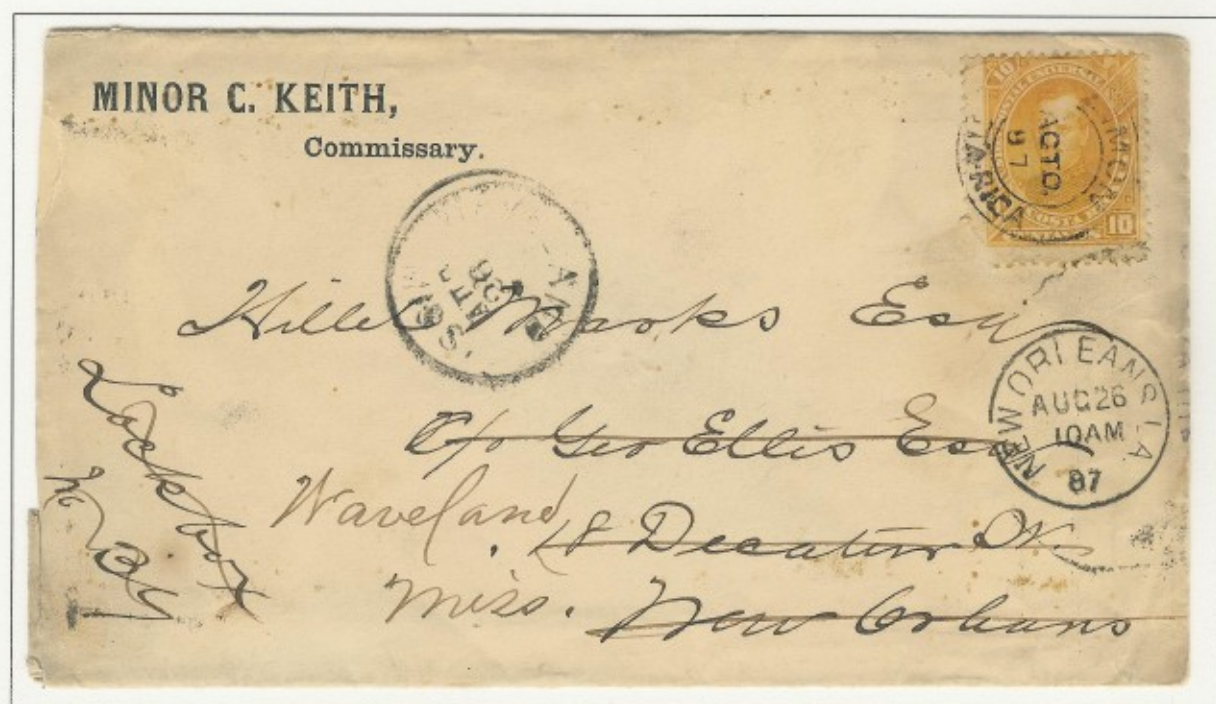 MINOR C. KEITH,
Commissary.
10
COSTA RICA
AGTO.
87
LIMON
10
AUG
Hillel Marks Esq
NEW ORLEANS LA
AUG 26
10AM
87
C/o Geo Ellis Esq
Waveland
18 Decatur St.
Miss.
New Orleans
Lock box